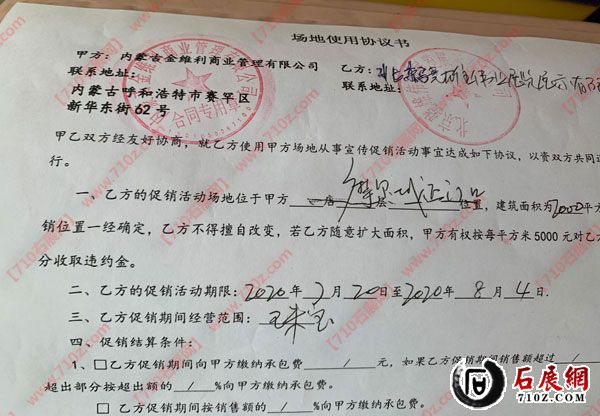 场地使用协议书
甲方：内蒙古金维利商业管理有限公司
联系地址：
内蒙古呼和浩特市赛罕区
新华东街62号
合同专用章
乙方：
联系地址：
甲乙双方经友好协商，就乙方使用甲方场地从事宣传促销活动事宜达成如下协议，以资双方共同遵
行。
一、乙方的促销活动场地位于甲方 店 层 位置，建筑面积为2000平方
销位置一经确定，乙方不得擅自改变，若乙方随意扩大面积，甲方有权按每平方米5000元对乙方
分收取违约金。
二、乙方的促销活动期限：2020年7月20日至2020年8月4日.
三、乙方促销期间经营范围：玉 珠宝
四、促销结算条件：
1、□乙方促销期间向甲方缴纳承包费 / 元，如果乙方促销期间销售额超过 /
超出部分按超出额的 / %向甲方缴纳承包费。
□ 乙方促销期间按销售额的 / %向甲方缴纳承包费。
【710石展网 www.710z.com】
石展網
710Z.COM